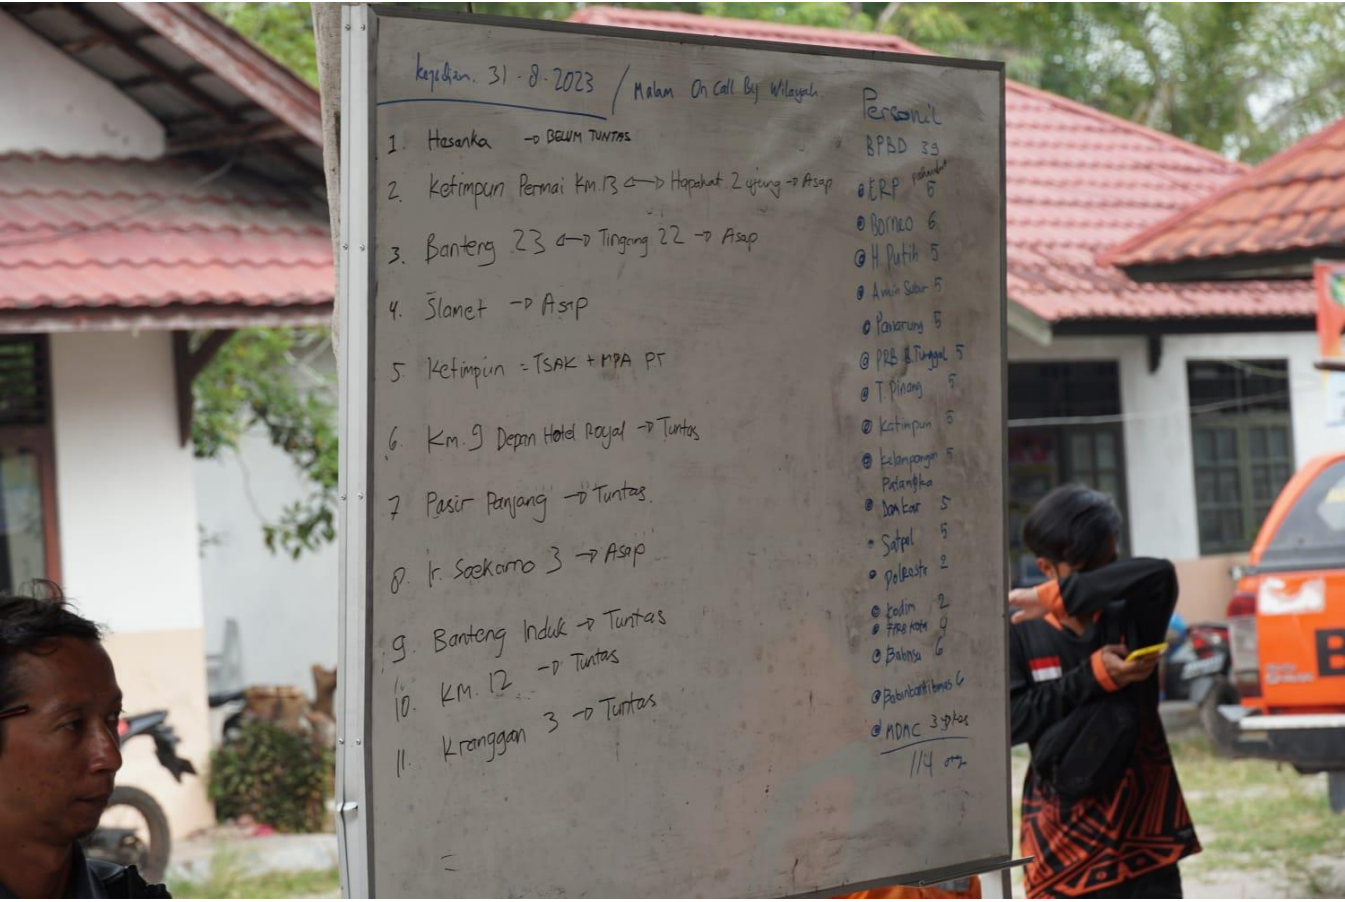 Kejadian. 31 - 8 - 2023 / Malam On Call By Wilayah.
1. Hasanka → BELUM TUNTAS
2. Ketimpun Permai Km.13 ↔ Hapakat 2 ujung → Asap
3. Banteng 23 ↔ Tingang 22 → Asap
4. Slamet → Asap
5. Ketimpun = TSAK + MPA PT
6. Km. 9 Depan Hotel Royal → Tuntas
7 Pasir Panjang → Tuntas.
8. Ir. Soekarno 3 → Asap
9. Banteng Induk → Tuntas
10. KM. 12 → Tuntas
11. Kranggan 3 → Tuntas
Personil
BPBD 39
ERP 5
Borneo 6
H. Putih 5
5
5
PRB B. Tunggal 5
T. Pinang 5
Katimpun 5
Kelampangan 5
Palangka
Damkar 5
Satpol 5
2
Kodim 2
Babinsa 6
6
MDMC 3
114 org
B